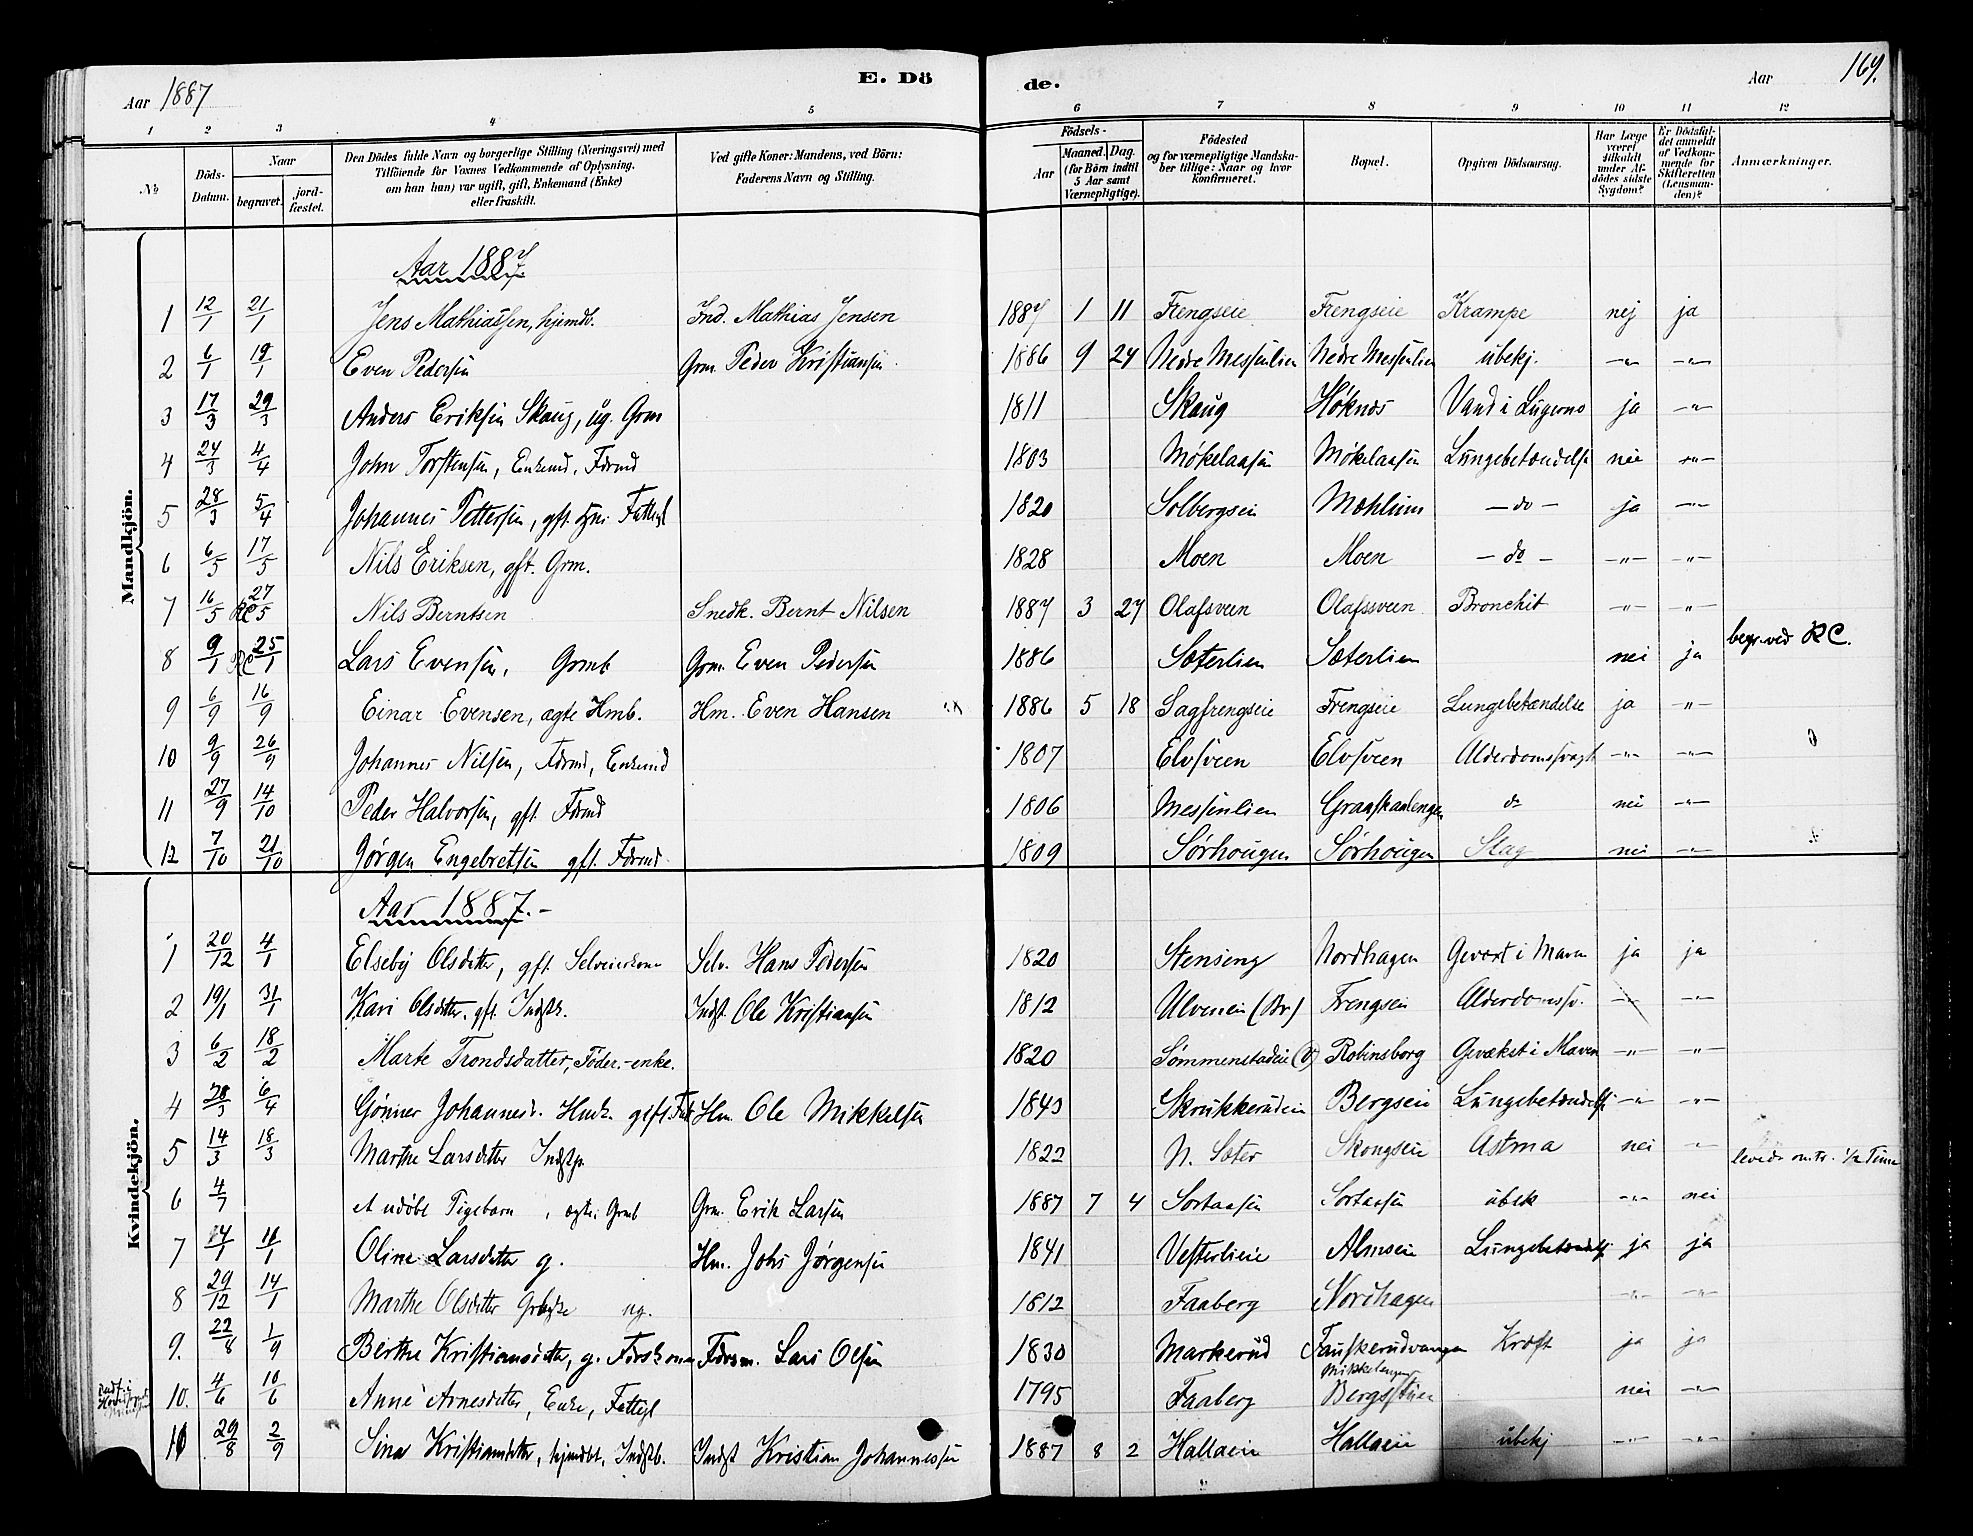 Aar 1887
E. Dö
de.
Aar
169.
1 2 3 4 5 6 7 8 9 10 11 12
№
Döds-Datum.
Naar
begravet. jord-fæstet.
Den Dödes fulde Navn og borgerlige Stilling (Næringsvei) med
Tilföiende for Voxnes Vedkommende af Oplysning,
om han (hun) var ugift, gift, Enkemand (Enke)
eller fraskilt.
Ved gifte Koner: Mandens, ved Börn:
Faderens Navn og Stilling.
Födsels-
Aar Maaned. Dag.
(for Börn indtil 5 Aar samt Værnepligtige).
Födested
og for værnepligtige Mandska-
ber tillige: Naar og hvor
konfirmeret.
Bopæl.
Opgiven Dödsaarsag.
Har Læge været tilkaldt under Af-dödes sidste Sygdom?
Er Dödsfal-det anmeldt af Vedkom-mende for Skifteretten (Lensman-den)?
Anmærkninger.
Mandkjön.
Aar 1887
1 12/1 21/1 Jens Mathiassen, hjemdb. Ind. Mathias Jensen 1887 1 11 Frengseie Frengseie Krampe nej ja
2 6/1 19/1 Even Pedersen Grm. Peder Kristiansen 1886 9 24 Nedre Messenlien Nedre Messenlien ubekj. -"- -"-
3 17/3 29/3 Anders Eriksen Skaug, ug. Grm 1811 Skaug Höknæs Vand i Lugerne ja -"-
4 24/3 4/4 John Torstensen, Enkemd. Fdrmd 1803 Mökelaasen Mökelaasen Lungebetændelse nei -"-
5 28/3 5/4 Johannes Pettersen, gft. Fattigl 1820 Solbergsein Mæhlum - do - ja -"-
6 6/5 17/5 Nils Eriksen, gft. Grm. 1828 Moen Moen - do - -"- -"-
7 16/5 RC 27/5 Nils Berntsen Snedk. Bernt Nilsen 1887 3 27 Olafsveen Olafssveen Bronchit -"- -"-
8 9/1 RC 25/1 Lars Evensen, Grmb Grm. Even Pedersen 1886 Sæterlien Sæterlien nei ja begr. ved RC.
9 6/9 16/9 Einar Evensen, ægte Hmb. Hm. Even Hansen 1886 5 18 Sagfrengseie Frengseie Lungebetændelse ja -"-
10 9/9 26/9 Johannes Nilsen, Fdrmd, Enkemd 1807 Elvsveen Elvsveen Alderdomssvagt -"- -"-
11 27/9 14/10 Peder Halvorsen, gft. Fdrmd 1806 Messenlien Graaskaalengen do nei -"-
12 7/10 21/10 Jörgen Engebretsen gft. Fdrmd 1809 Sörhougen Sörhougen Slag nei -"-
Kvindekjön.
Aar 1887. -
1 20/12 4/1 Elseby Olsdatter, gft. Selveierkone Selv. Hans Pedersen 1820 Stenseng Nordhagen Gevext i Maven ja ja
2 19/1 31/1 Kari Olsdatter. gft. Indstk. Indst. Ole Kristiansen 1812 Ulvenein (Br) Frengsein Alderdomssv. -"- -"-
3 6/2 18/2 Marte Trondsdatter, Föder.-enke. 1820 Sömmenstadeie (V) Robinsborg Gevækst i Maven -"- -"-
4 28/3 6/4 Gönner Johannesd. Hmk. gift Hm. Ole Mikkelsen 1843 Skrukkerudein Bergseie Lungebetændelse -"- -"-
5 14/3 18/3 Marthe Larsdatter 1822 N. Sæter Skongseie Astma nei -"-
6 4/7 et udöbt Pigebarn, ægte, Grmb Grm. Erik Larsen 1887 7 4 Sortaasen Sortaasen ubek -"- nei levede omtr. 1/2 Time
7 11/1 Oline Larsdatter g. Hm. Johs Jörgensen 1841 Vesterlieie Almseie Lungebetændelse ja ja
8 29/12 14/1 Marthe Olsdatter ug. 1812 Faaberg Nordhagen -"- -"-
9. 22/8 1/9 Berthe Kristiansdatter, g. Fdrskone Fdrsm. Lars Olsen 1830 Markerud Fauskerudvangen Kræft ja ja
10. 4/6 10/6 Anne Arnesdatter, Enke, Fattigl 1795 Faaberg Mikkelengen Bergsstuen nei -"-
11 29/8 2/9 Sina Kristiansdatter, hjemdbt, Indstb. Indst Kristian Johannessen 1887 8 2 Hallaeie Hallaeie ubekj -"- -"-